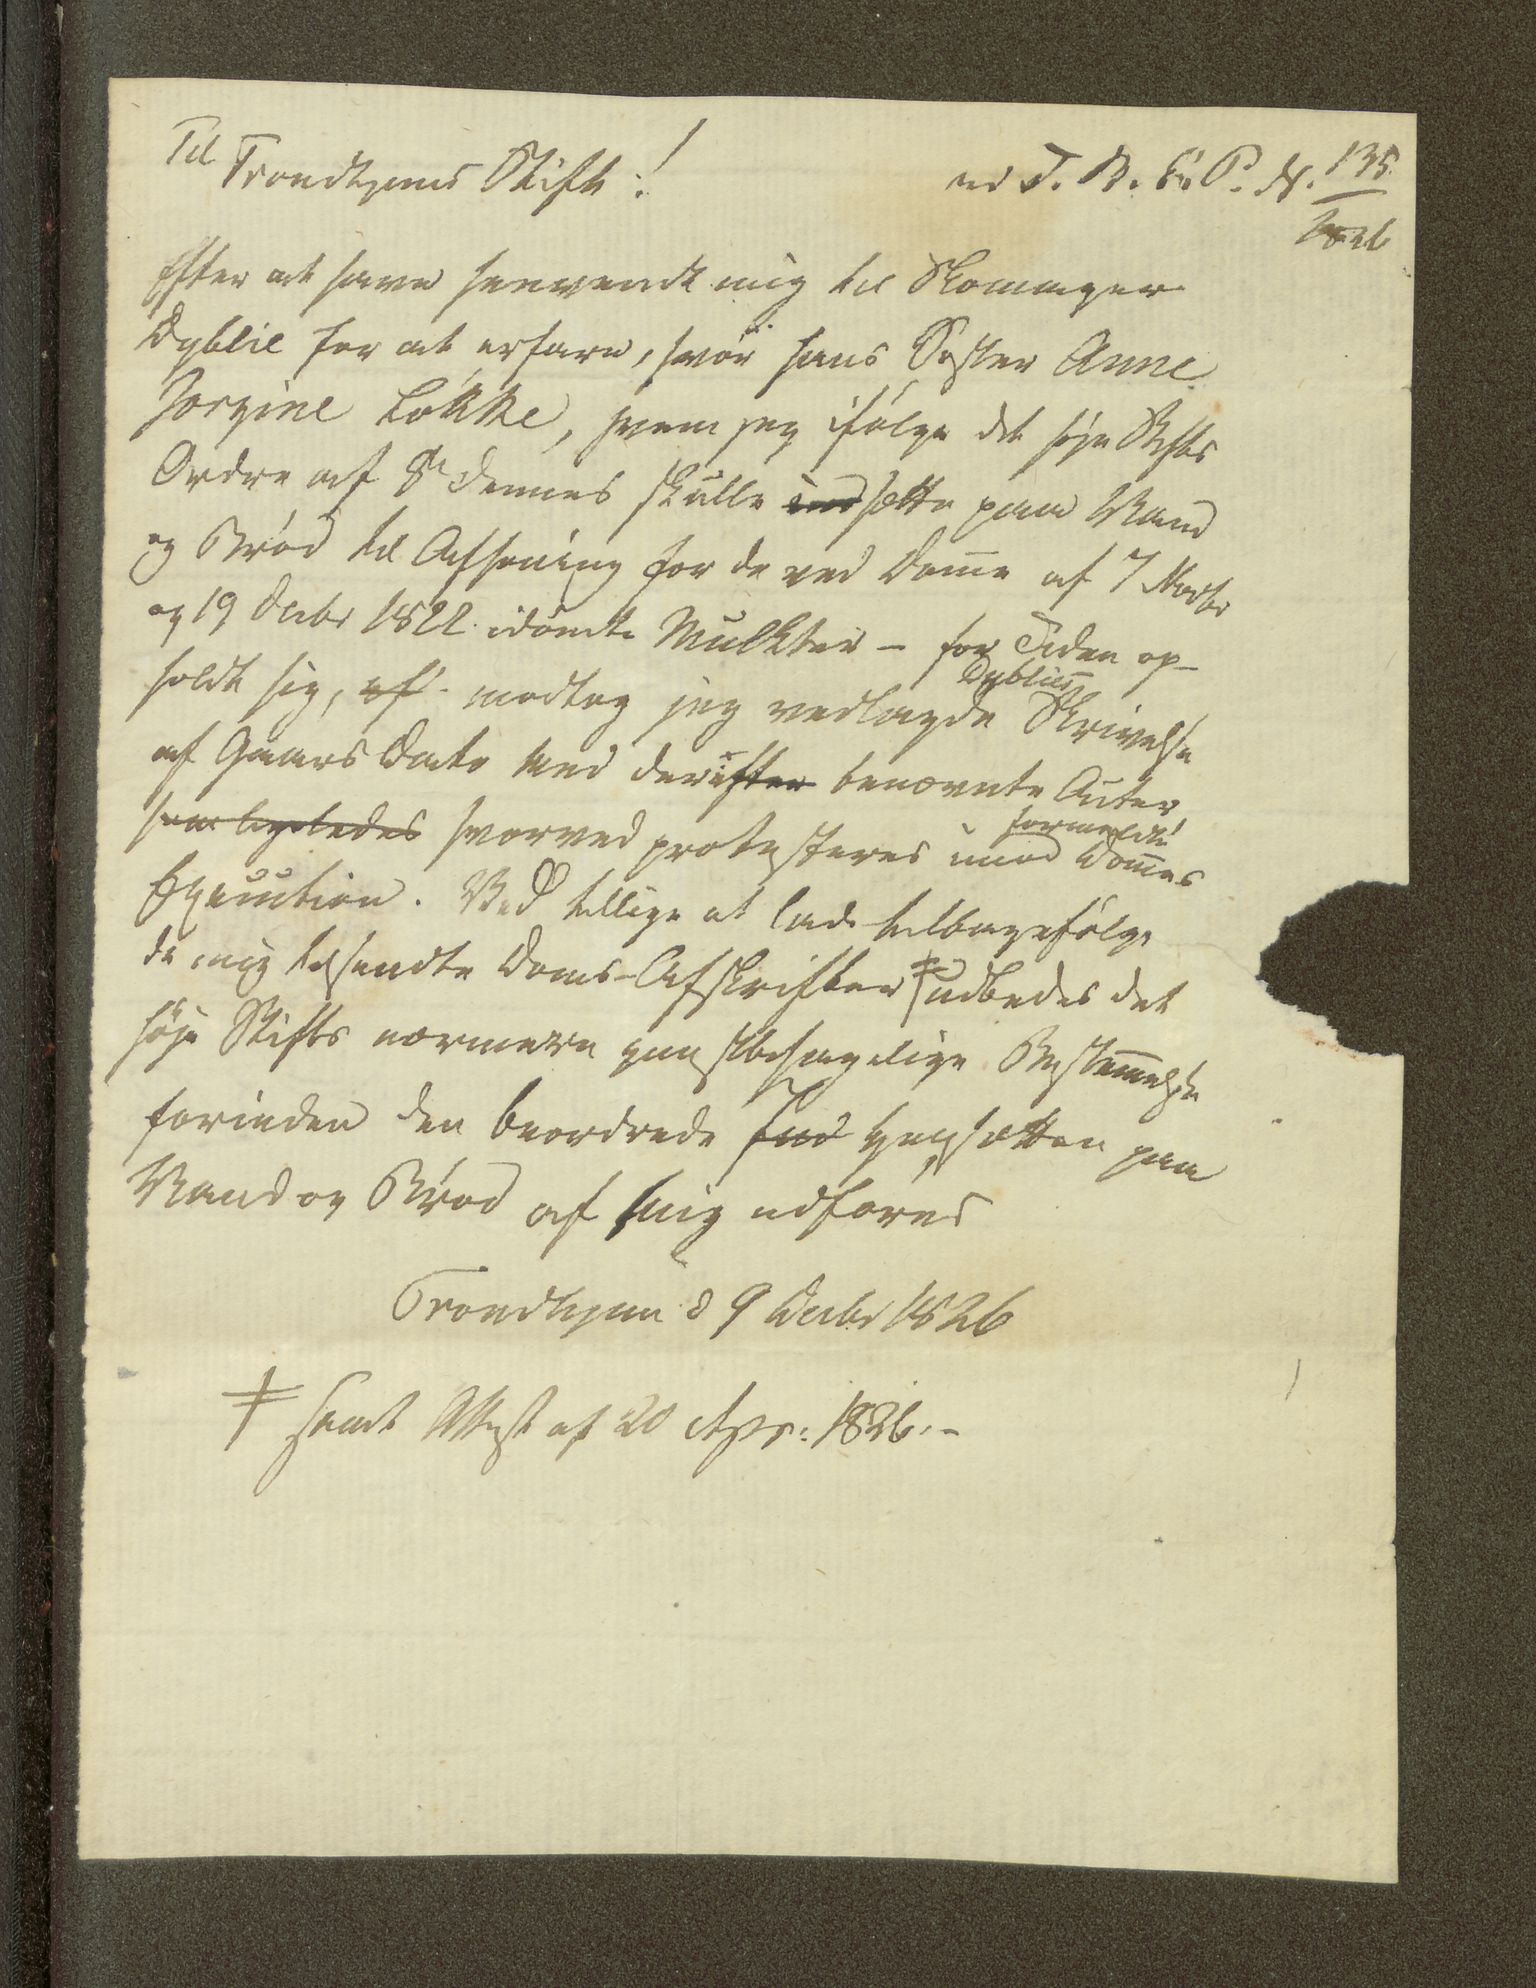 Til
Trondhjems Stift!
ad T. B. C. P. N. 135
1826
Efter at have henvendt mig til Skomager
Dyblie for at erfare, hvor hans Søster Anne
Jorgine Løkke, hvem jeg ifølge det høje Stifts
Ordre af 8de dennes skulle ind sætte paa Vand
og Brød til Afsoning for de ved Domme af 7 Novbr
og 19 Decbr 1822 idømte Mulkter – for Tiden op-
holdt sig, af modtog jeg vedlagde Dyblies Skrivelse
af Gaars Dato med deri efter benævnte Acter
som ligeledes hvorved protesteres imod formeldte Dommes
Execution. Ved tillige at lade tilbagefølge
de mig tilsendte Doms-Afskrifter ‡ udbedes det
høje Stifts nærmere gunstbehagelige Bestemmelse
forinden den beordrede Ind Hensætten paa
Vand og Brød af mig udføres
Trondhjem d 9 Decbr 1826
‡ samt Attest af 20 Apr: 1826.-